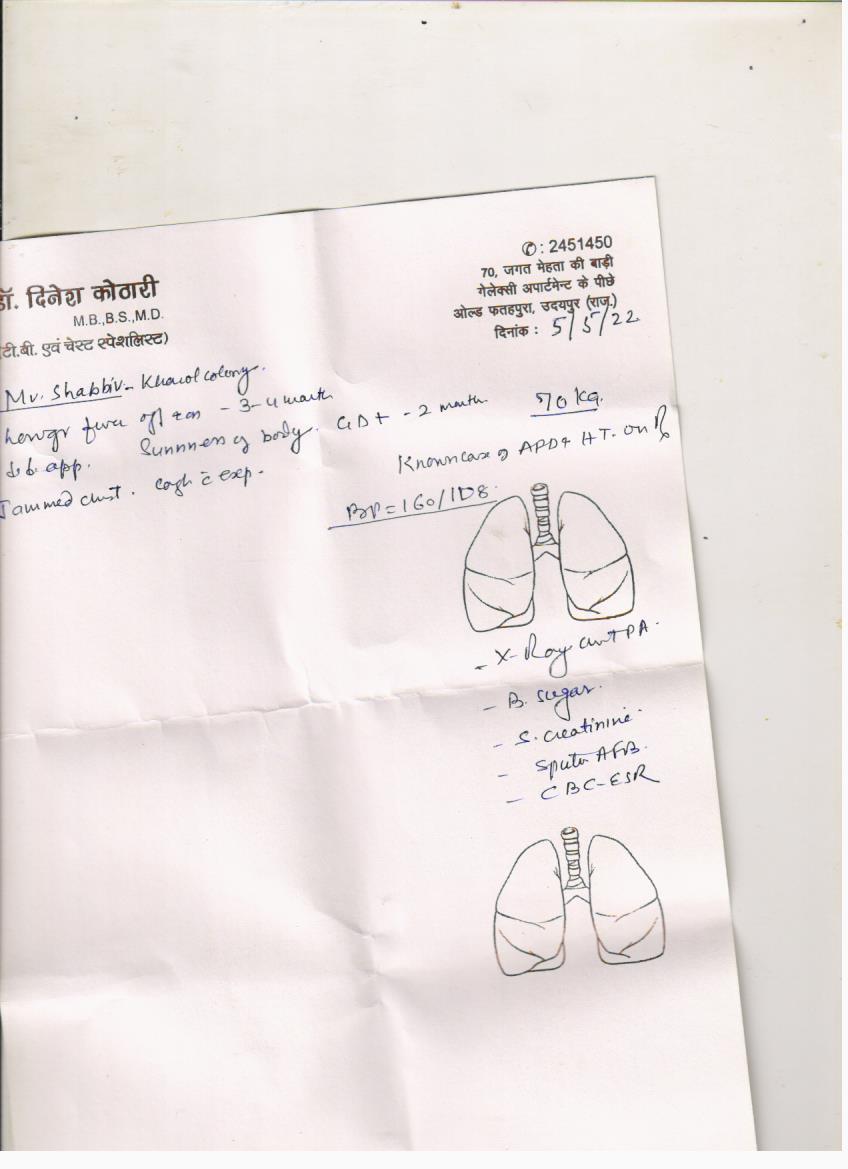 डॉ. दिनेश कोठारी
M.B.,B.S.,M.D.
टी.बी. एवं चेस्ट स्पेशलिस्ट)
✆: 2451450
70, जगत मेहता की बाड़ी
गेलेक्सी अपार्टमेन्ट के पीछे
ओल्ड फतहपुरा, उदयपुर (राज.)
दिनांक : 5/5/22
Mr. Shabbir - Colony.
- 3-4 month
app. of body. - 2 month 70 kg.
chest. cough c̄ exp. Known case of APD + HT. on ℞
BP = 160/108.
- X-Ray chest PA.
- B. sugar.
- S. creatinine.
- Sputum AFB.
- CBC-ESR